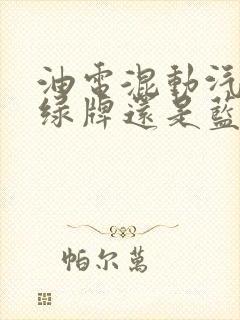 油電混動汽
綠牌還是藍
帕尔萬